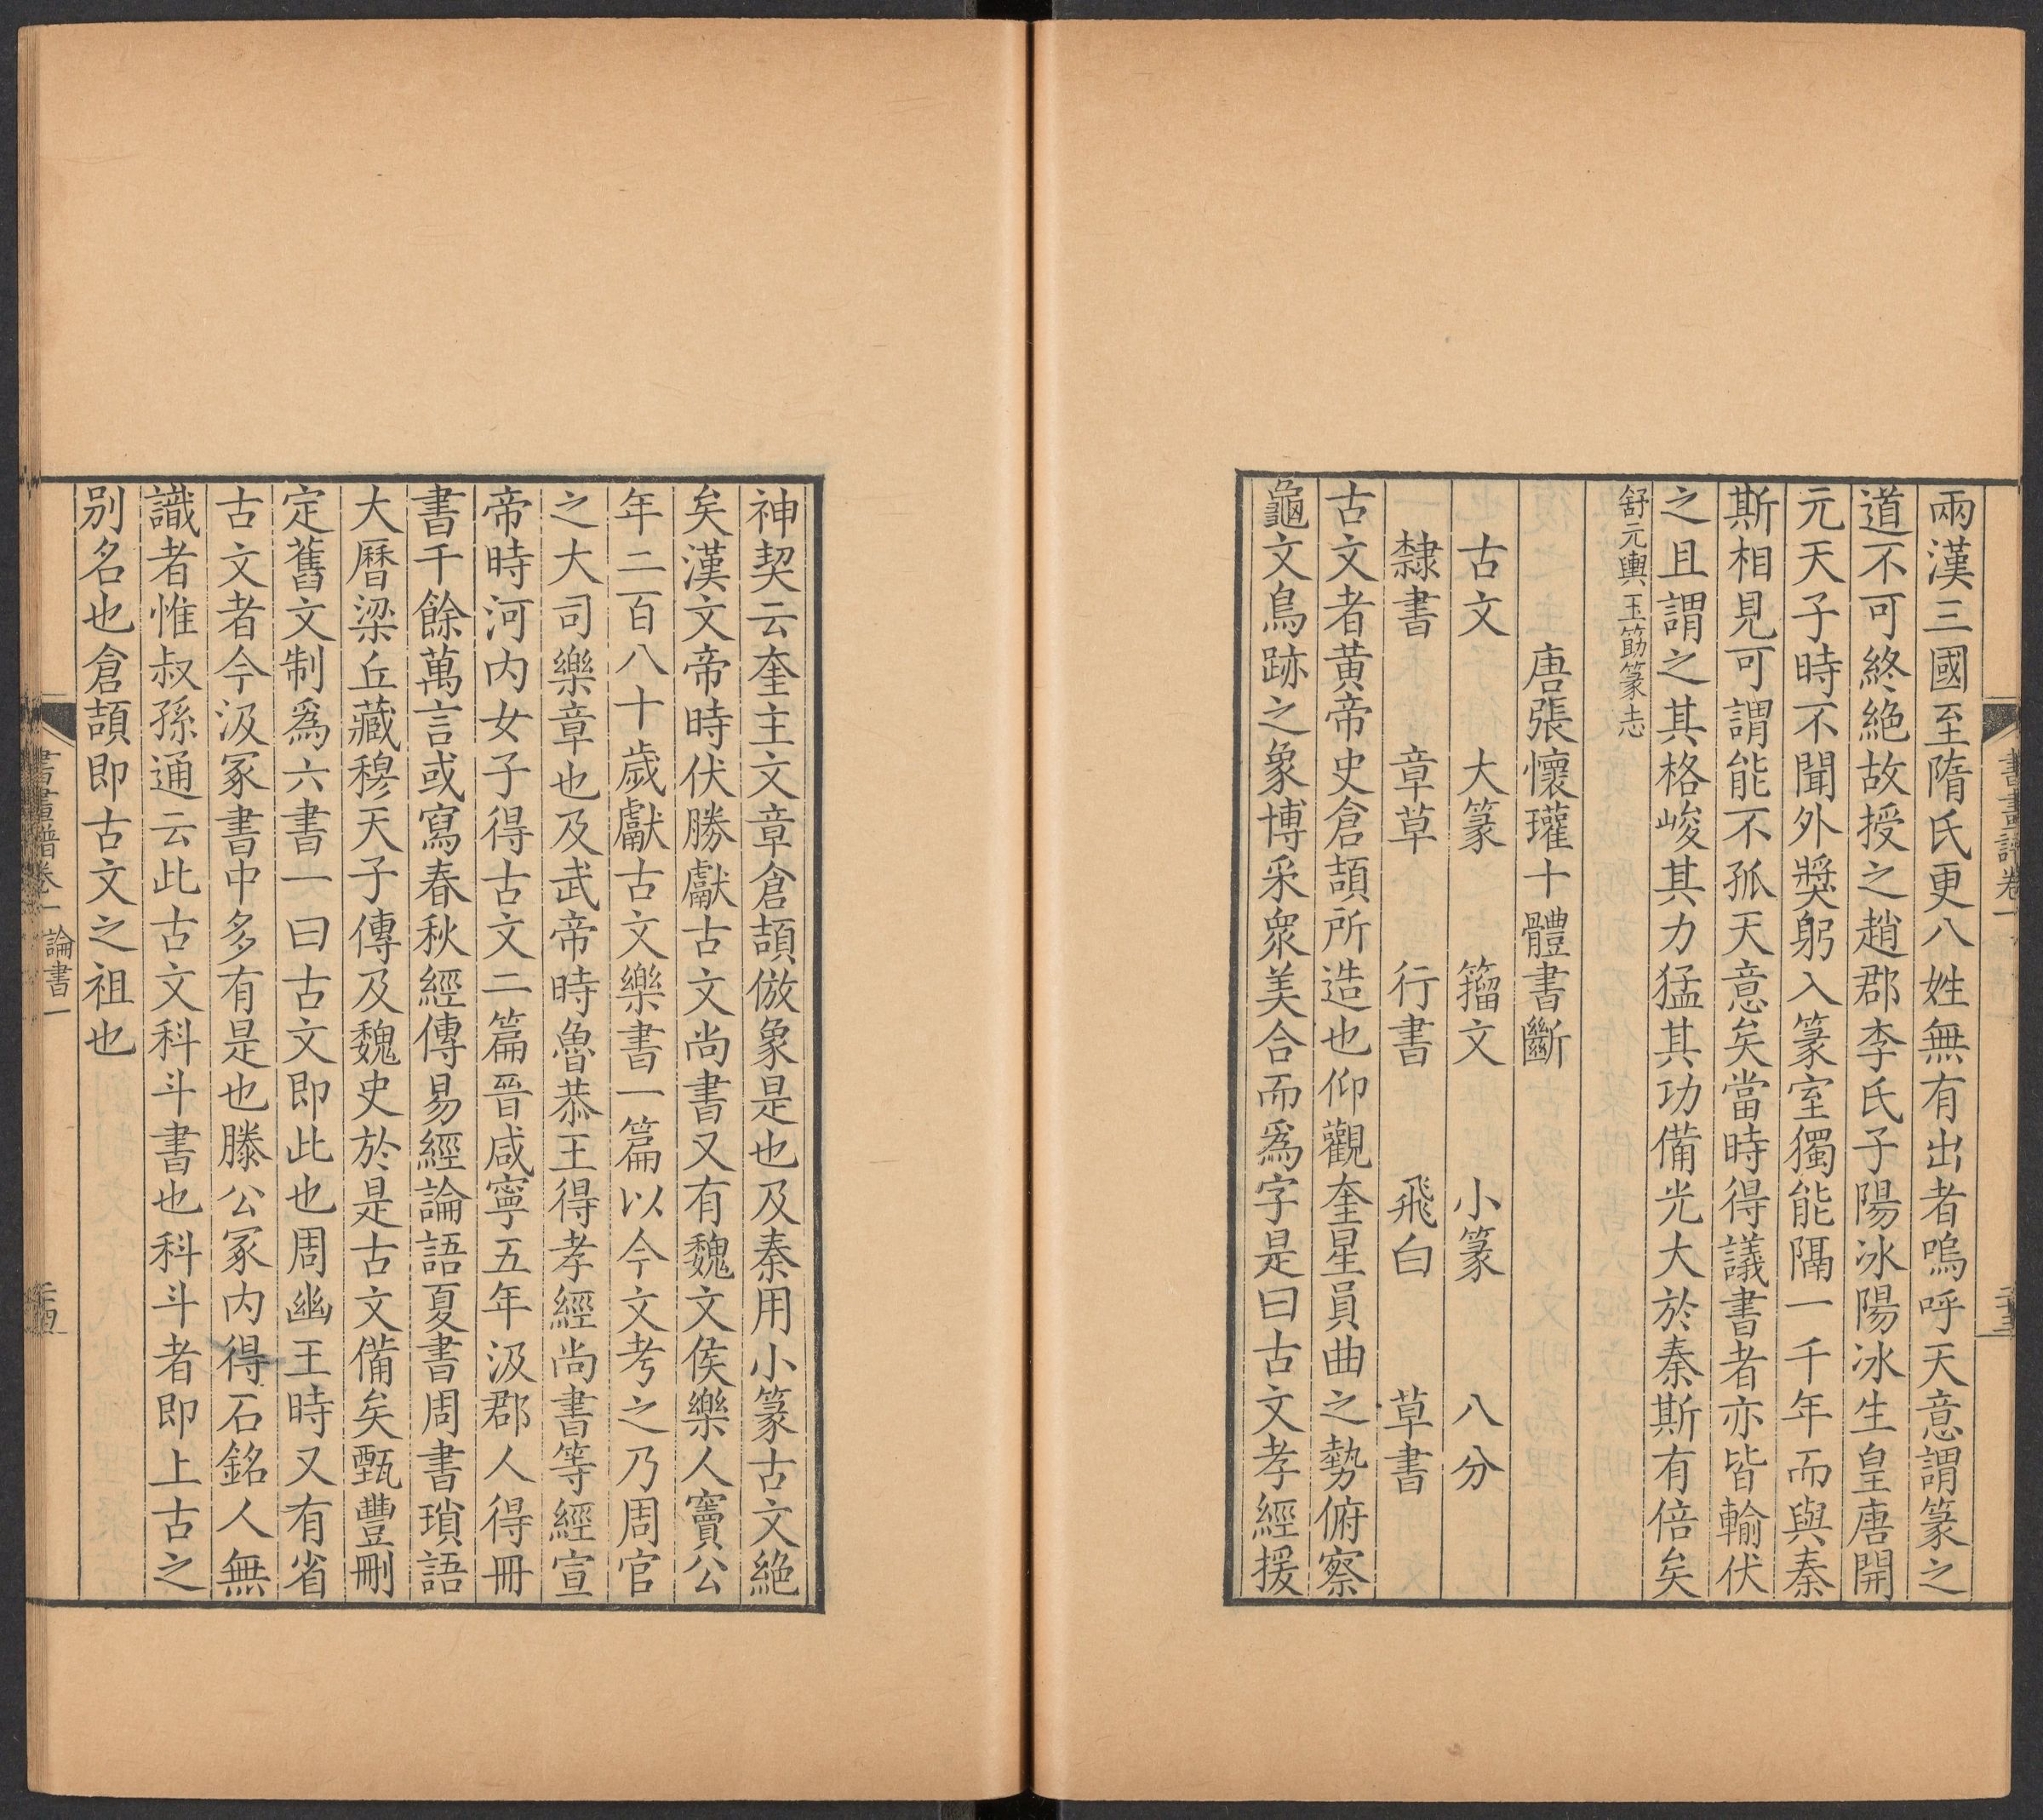 兩漢三國至隋氏更八姓無有出者嗚呼天意謂篆之
道不可終絶故授之趙郡李氏子陽冰陽冰生皇唐開
元天子時不聞外奬躬入篆室獨能隔一千年而與秦
斯相見可謂能不孤天意矣當時得議書者亦皆輸伏
之且謂之其格峻其力猛其功備光大於秦斯有倍矣
舒元輿玉筯篆志
唐張懷瓘十體書斷
古文 大篆 籀文 小篆 八分
隸書 章草 行書 飛白 草書
古文者黃帝史倉頡所造也仰觀奎星員曲之勢俯察
龜文鳥跡之象博采衆美合而爲字是曰古文孝經援
神契云奎主文章倉頡倣象是也及秦用小篆古文絶
矣漢文帝時伏勝獻古文尚書又有魏文侯樂人竇公
年二百八十歲獻古文樂書一篇以今文考之乃周官
之大司樂章也及武帝時魯恭王得孝經尚書等經宣
帝時河内女子得古文二篇晉咸寧五年汲郡人得冊
書千餘萬言或寫春秋經傳易經論語夏書周書瑣語
大曆梁丘藏穆天子傳及魏史於是古文備矣甄豐刪
定舊文制爲六書一曰古文即此也周幽王時又有省
古文者今汲冢書中多有是也滕公冢内得石銘人無
識者惟叔孫通云此古文科斗書也科斗者即上古之
别名也倉頡即古文之祖也
書畫譜卷一 論書一